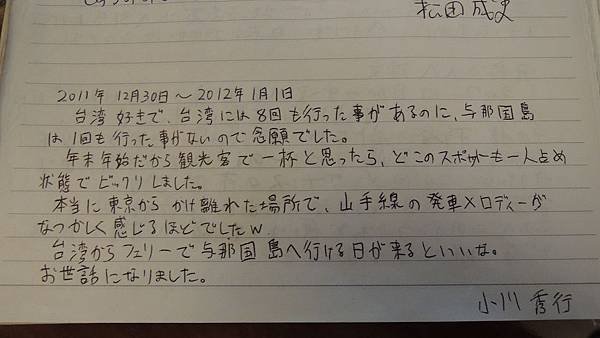 松田成史
2011年 12月30日～2012年1月1日
台湾好きで、台湾には8回も行った事があるのに、与那国島
は1回も行った事がないので念願でした。
年末年始だから観光客で一杯と思ったら、どこのスポットも一人占め
状態でビックリしました。
本当に東京からかけ離れた場所で、山手線の発車メロディーが
なつかしく感じるほどでしたw
台湾からフェリーで与那国島へ行ける日が来るといいな。
お世話になりました。
小川 秀行